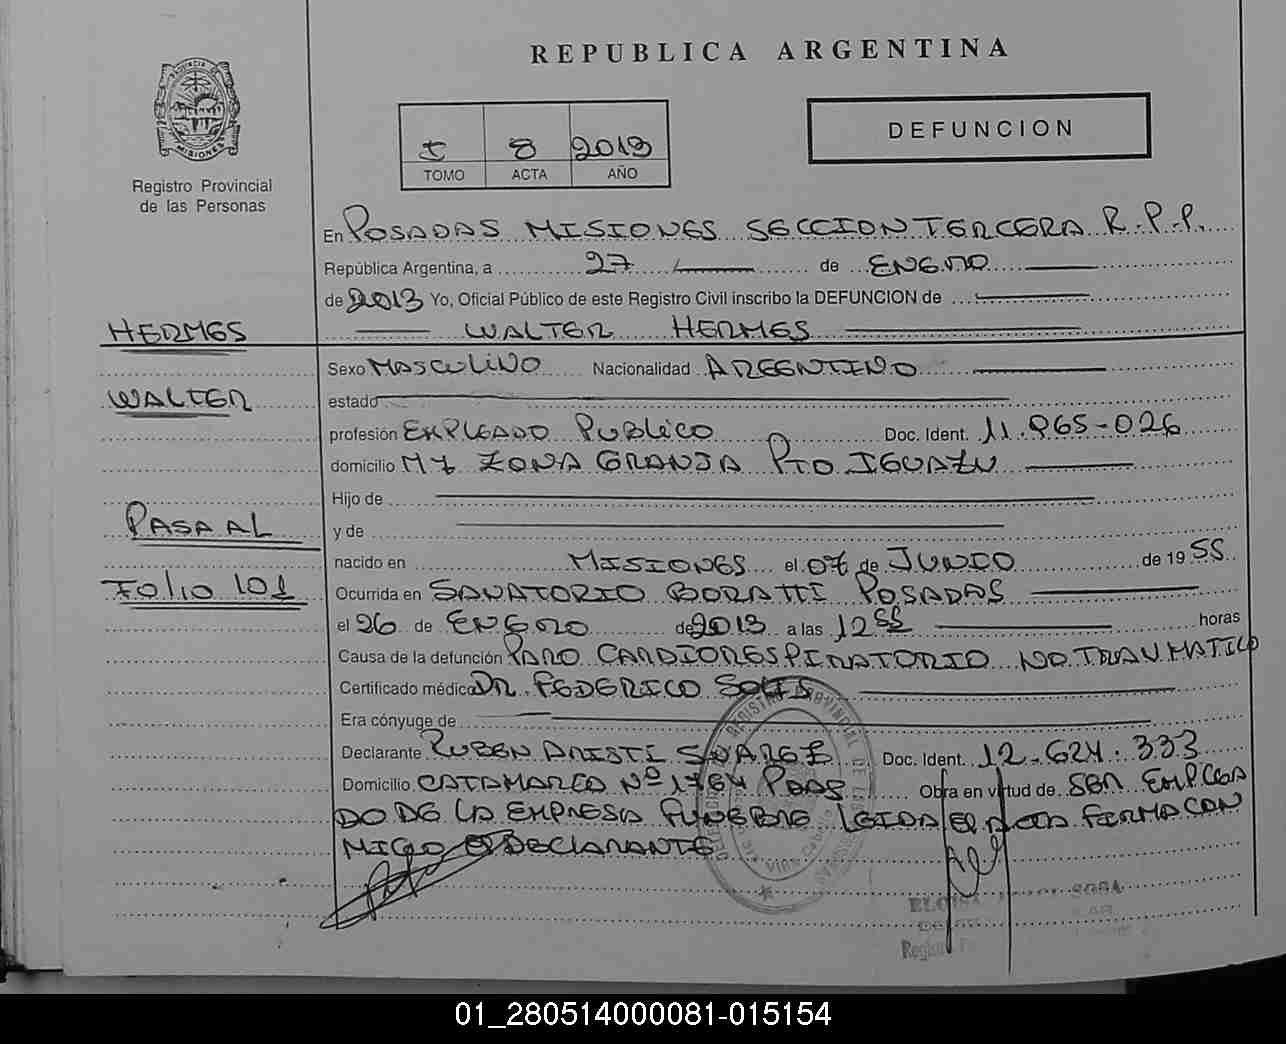 REPUBLICA ARGENTINA
PROVINCIA DE
MISIONES
Registro Provincial
de las Personas
I 8 2013
TOMO ACTA AÑO
DEFUNCION
En POSADAS MISIONES SECCION TERCERA R.P.P.
República Argentina, a 27 de ENERO
de 2013 Yo, Oficial Público de este Registro Civil inscribo la DEFUNCION de
HERMES WALTER HERMES
Sexo MASCULINO Nacionalidad ARGENTINO
WALTER estado
profesión EMPLEADO PUBLICO Doc. Ident. 11.965-026
domicilio M 7 ZONA GRANJA PTO IGUAZU
Hijo de
PASA AL
y de
nacido en MISIONES el 07 de JUNIO de 1955
FOLIO 101
Ocurrida en SANATORIO BORATTI POSADAS
el 26 de ENERO de 2013 a las 12 55 horas
Causa de la defunción PARO CARDIORESPIRATORIO NO TRAUMATICO
Certificado médico DR. FEDERICO SOLIS
Era cónyuge de
Declarante RUBEN ARISTI SUAREZ Doc. Ident. 12-624.333
Domicilio CATAMARCA Nº 1764 PDAS Obra en virtud de SER EMPLEA
DO DE LA EMPRESA FUNEBRE LEIDA EL ACTA FIRMA CON
MIGO EL DECLARANTE
REGISTRO PROVINCIAL DE LAS
SOSA
01_280514000081-015154